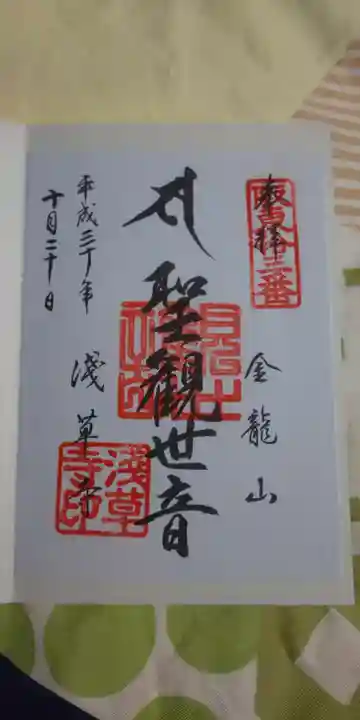 奉拝
坂東十三番
金龍山
聖観世音
淺草寺
淺草寺印
平成三十年
十月二十日